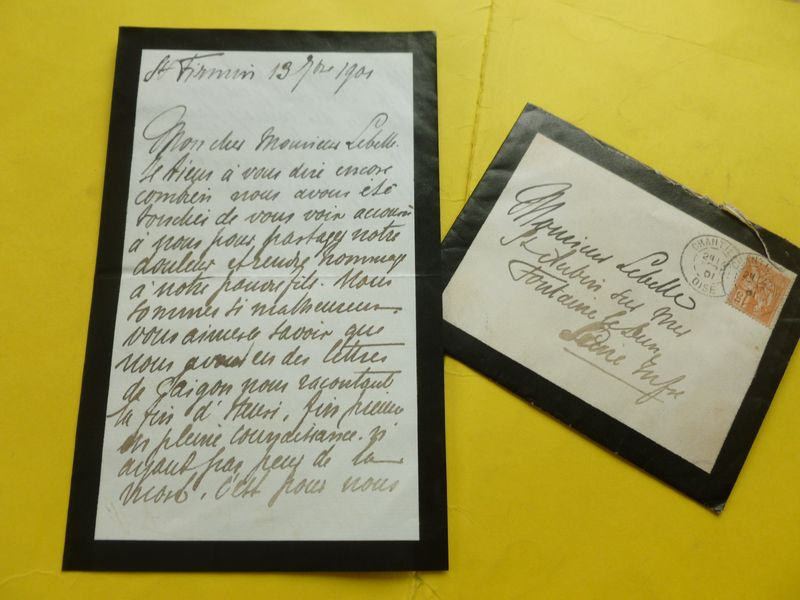 St Firmin 13 7bre 1901
Mon cher Monsieur Lebelle
Je tiens à vous dire encore
combien nous avons été
touchés de vous voir accourir
à nous pour partager notre
douleur et rendre hommage
à notre pauvre fils. Nous
sommes si malheureux
vous aimerez savoir que
nous avons eu des lettres
de Saigon nous racontant
la fin d'Henri, fin pieuse
en pleine connaissance. n'
ayant pas peur de la
mort, c'est pour nous
Monsieur Lebelle
St Aubin sur Mer
Fontaine le Dun
Seine Infre
CHANTILLY
OISE
01
15